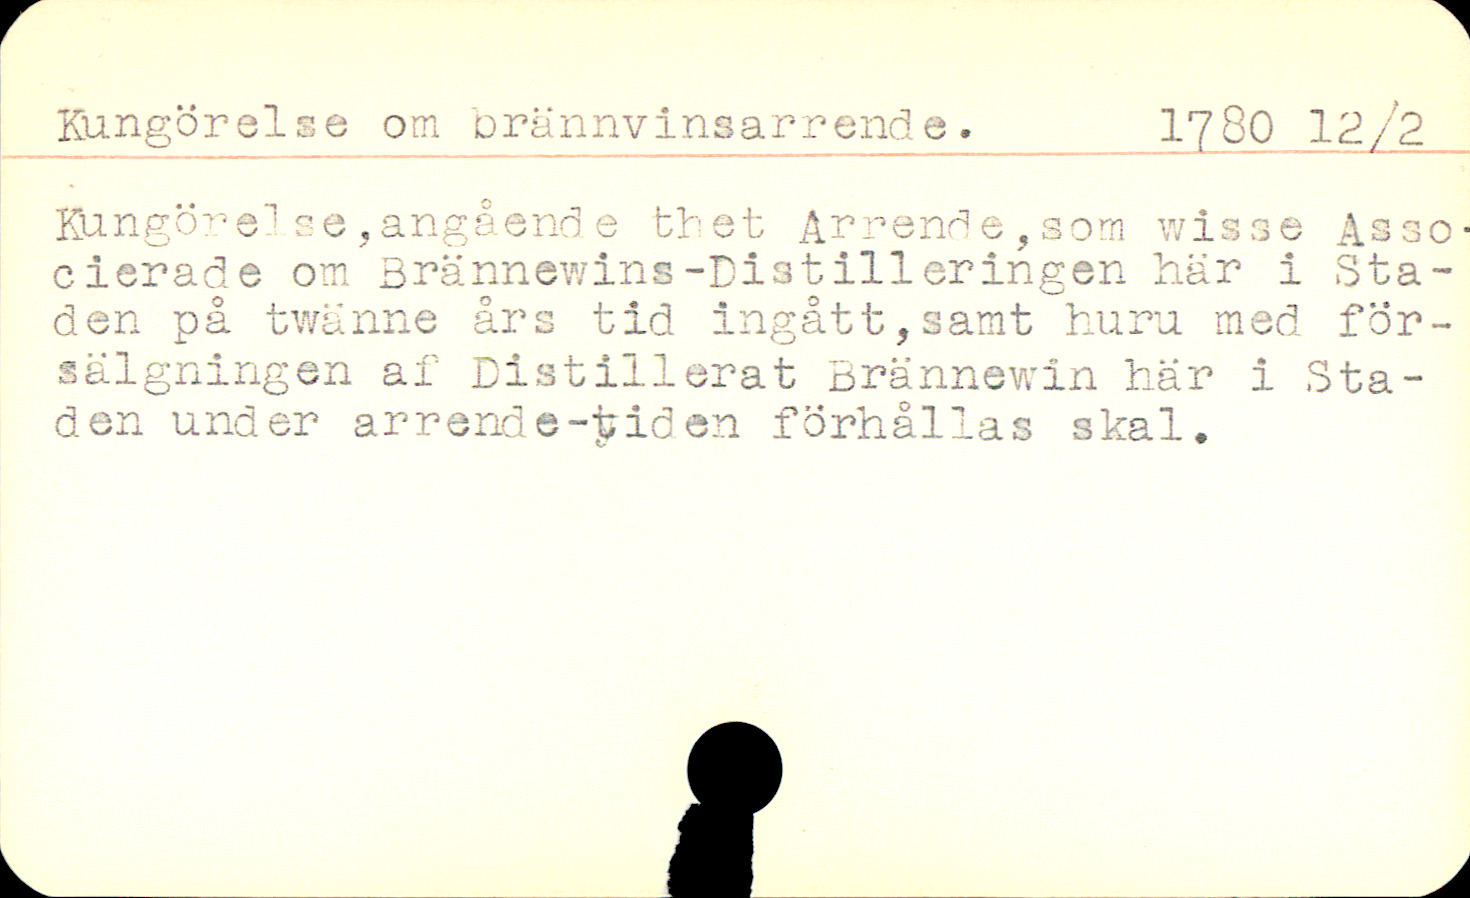 Kungörelse om brännvinsarrende. 1780 12/2
Kungörelse,angående thet Arrende,som wisse Asso-
cierade om Brännewins-Distilleringen här i Sta-
den på twänne års tid ingått,samt huru med för-
sälgningen af Distillerat Brännewin här i Sta-
den under arrende-tiden förhållas skal.